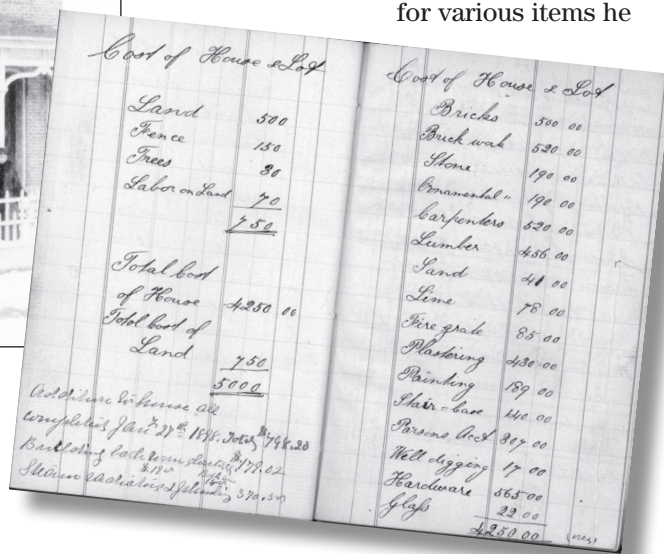 for various items he
Cost of House & Lot
Land 500
Fence 150
Trees 30
Labor on Land 70
750
Total Cost
of House 4250 00
Total Cost of
Land 750
5000
Additions to house all
completed Jan 27th 1898. Total $798.23
Building
Steam radiators & 370.50
Cost of House & Lot
Bricks 500 00
Brick work 520 00
Stone 190 00
Ornamental " 190 00
Carpenters 520 00
Lumber 456 00
Sand 41 00
Lime 78 00
Fire grate 85 00
Plastering 430 00
Painting 189 00
Stair-case 140 00
Parsons Acct 807 00
Well digging 17 00
Hardware 565 00
Glass 22 00
4250 00